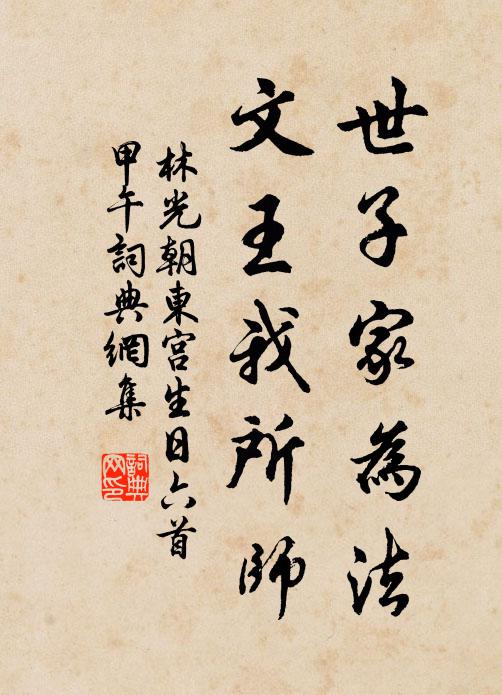 世子家為法
文王我所師
林光朝東宮生日六首
甲午詞典網集
詞典網印